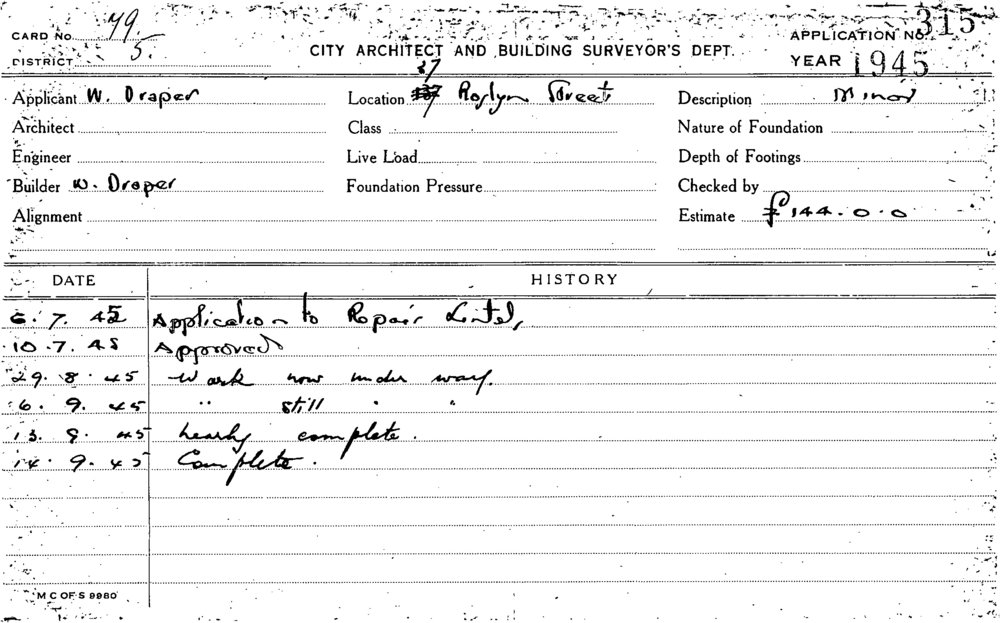 CARD NO. 79.
APPLICATION NO. 315
DISTRICT 5.
CITY ARCHITECT AND BUILDING SURVEYOR'S DEPT.
YEAR 1945
37
Applicant W. Draper Location Roslyn Street Description Minor
Architect Class Nature of Foundation
Engineer Live Load Depth of Footings
Builder W. Draper Foundation Pressure Checked by
Alignment Estimate £144.0.0
DATE HISTORY
6.7.45 Application to Repair Lintel,
10.7.45 Approved
29.8.45 Work now under way.
6.9.45 " still " "
13.9.45 nearly complete.
14.9.45 Complete.
M C OF S 9980